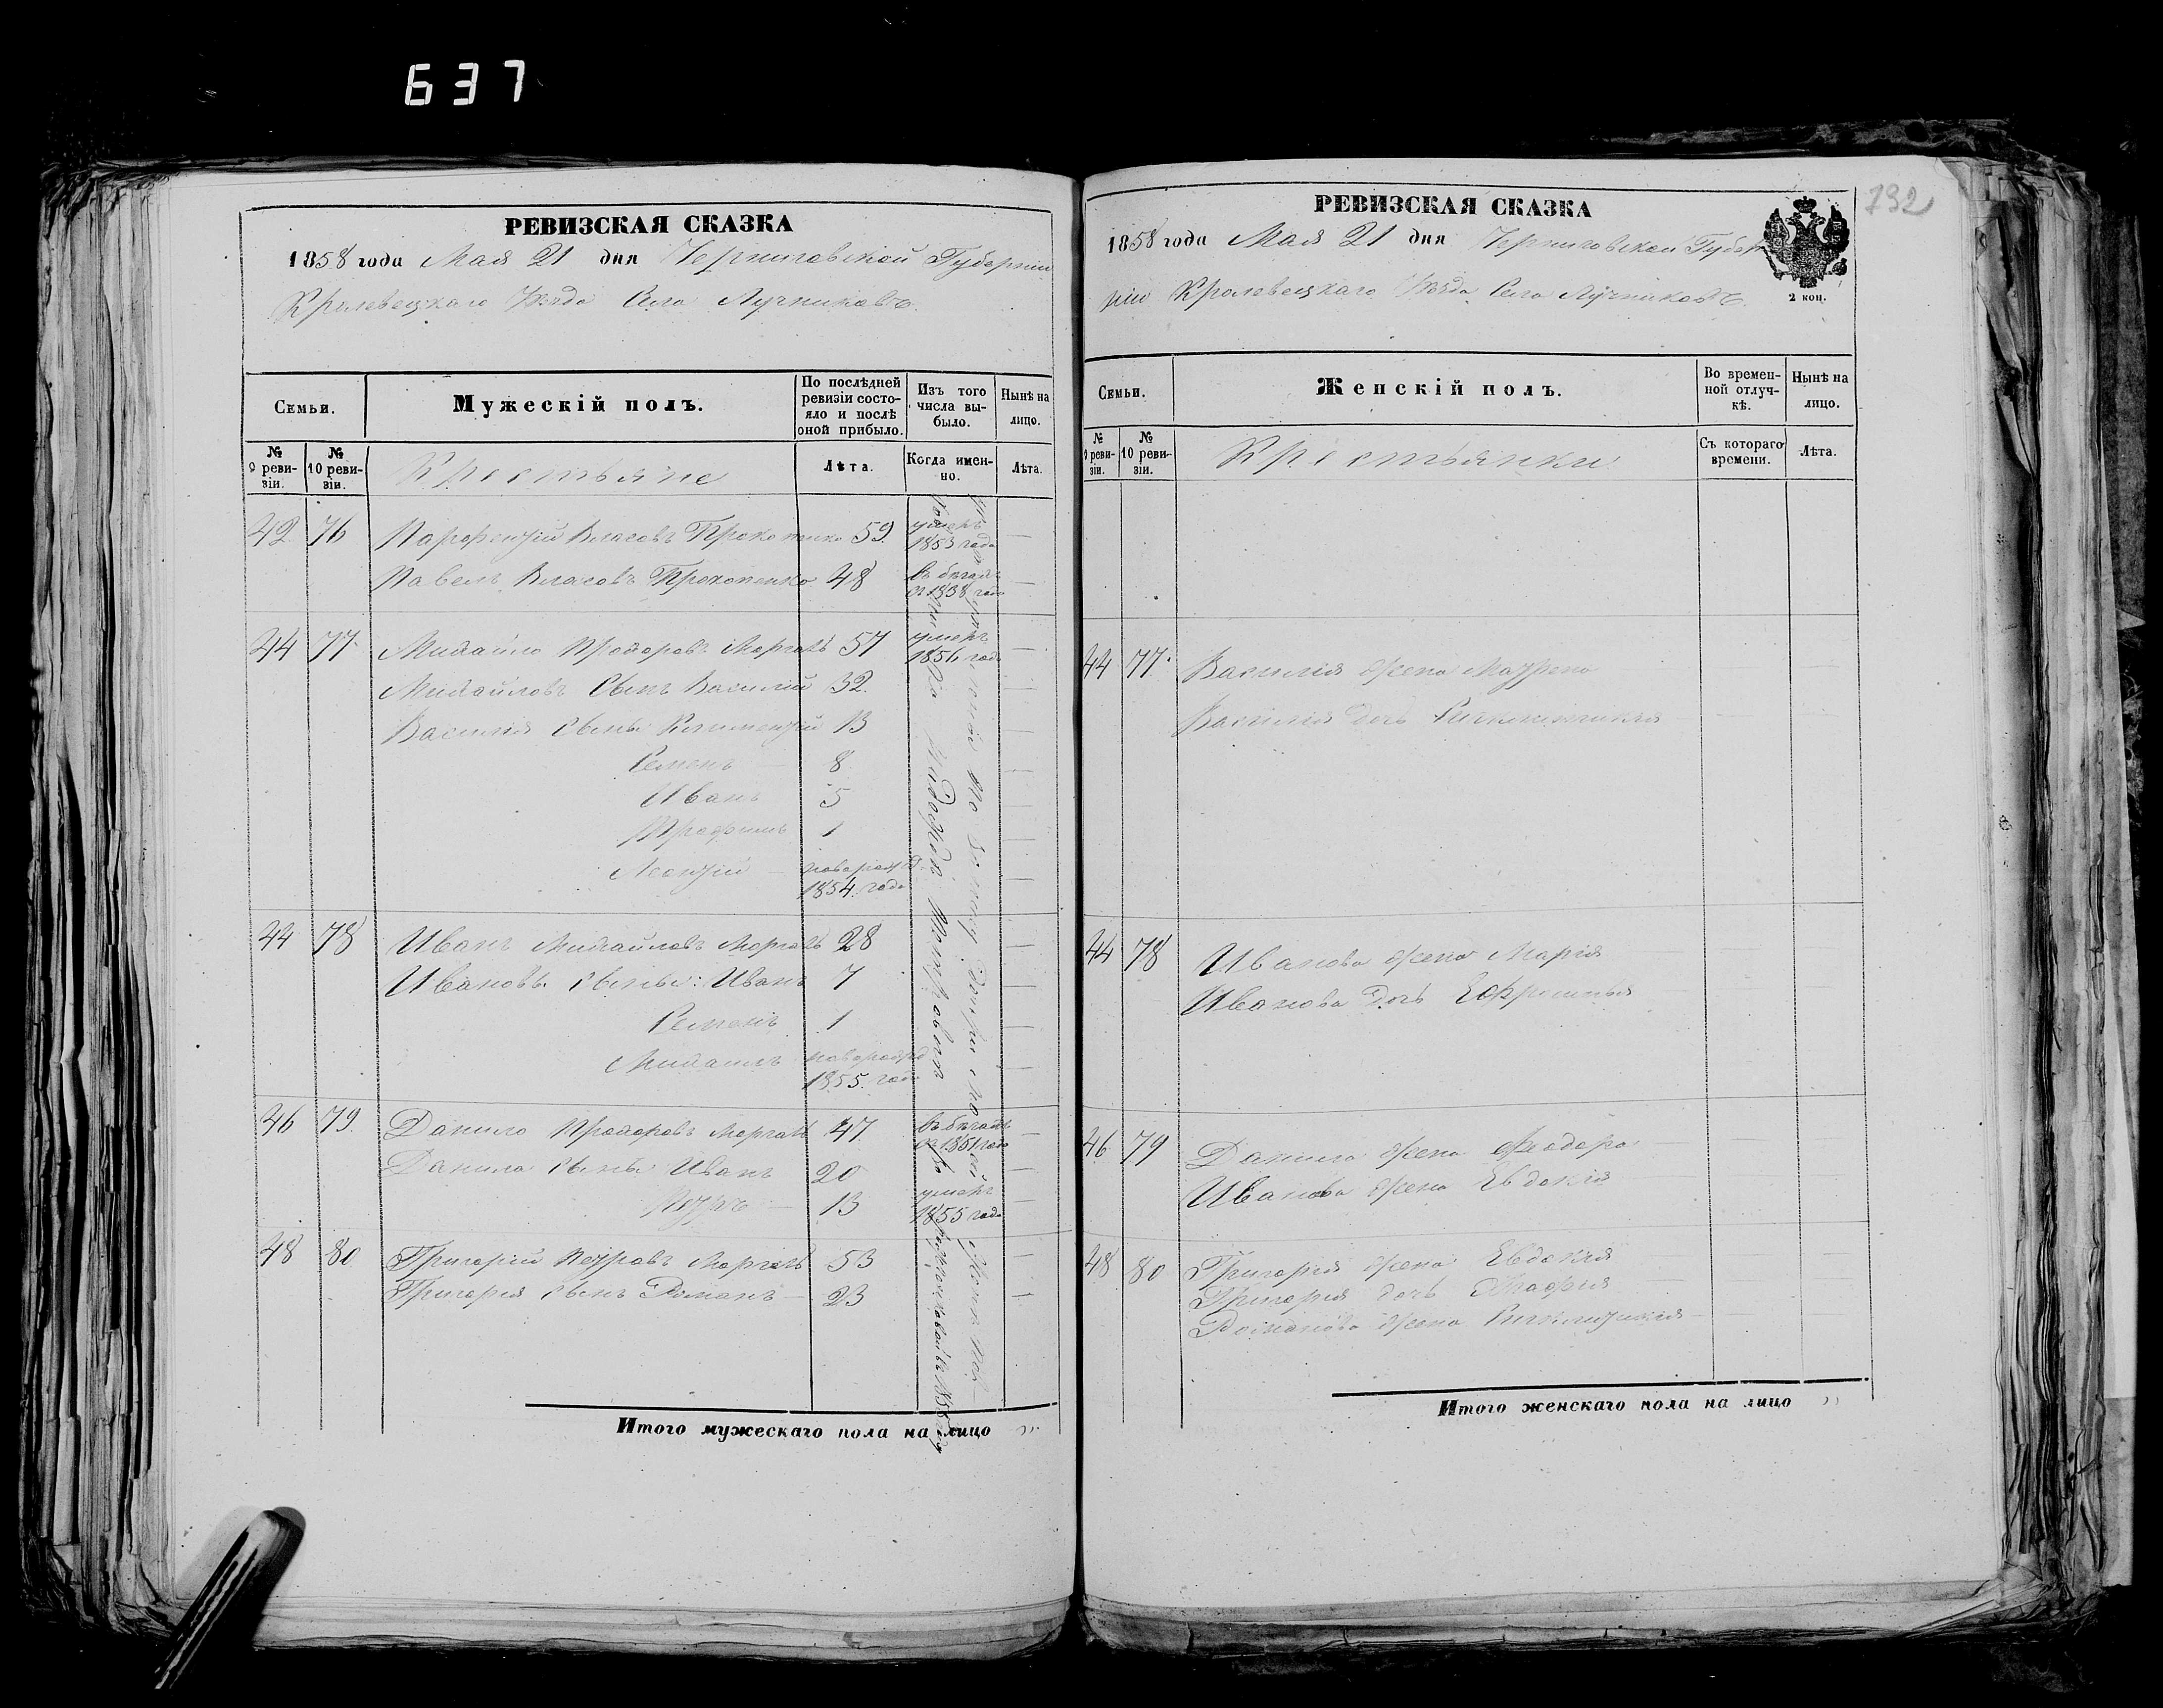 637
РЕВИЗСКАЯ СКАЗКА
1858 года Мая 21 дня Черниговской Губерніи
Кролевецкаго Уѣзда Села Лучниковъ.
Семьи.
Мужескій полъ.
По послѣдней ревизіи состояло и послѣ оной прибыло.
Изъ того числа выбыло.
Нынѣ на лицо.
№ 9 ревизіи.
№ 10 ревизіи.
Крестьяне
Лѣта.
Когда именно.
Лѣта.
42 76 Парфентій Власовъ 59 умеръ 1853 года —
Павелъ Власовъ Прокопенко 48 Въ бѣгахъ съ 1838 года —
44 77 Михайло Прохоровъ Моргачъ 57 умеръ 1856 года —
Михайловъ Сынъ Василій 32. —
Василія Сыны Климентій 13 —
Семенъ — 8 —
Иванъ 5 —
Трофимъ 1 —
Леонтій — новорожд. 1854. года —
44 78 Иванъ Михайловъ Моргачъ 28 —
Ивановы Сыны: Иванъ 7 —
Семенъ 1 —
Михаилъ новорожд 1855. года —
46 79. Данило Прохоровъ Моргачъ 47 Въ бѣгахъ съ 1851 года —
Данила Сыны Иванъ 20 —
Петръ — 13 умеръ 1855 года —
48 80 Григорій Петровъ Моргачъ 53 —
Григорія Сынъ Романъ — 23 —
Итого мужескаго пола на лицо „
РЕВИЗСКАЯ СКАЗКА
1858 года Мая 21 дня Черниговской Губер
ніи Кролевецкаго Уѣзда Села Лучниковъ.
2 коп.
732
Семьи.
Женскій полъ.
Во временной отлучкѣ.
Нынѣ на лицо.
№ 9 ревизіи.
№ 10 ревизіи.
Крестьянки
Съ котораго времени.
Лѣта.
44 77. Василія жена Мотрона
Василія дочь
44 78 Иванова жена Марія
Иванова дочь Ефросинья
46 79 Данила жена Феодора
Иванова жена Евдокія
48 80 Григорія жена Евдокія
Григорія дочь Агафія
Романова жена
Итого женскаго пола на лицо „